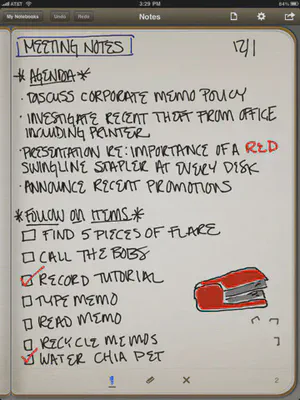 AT&T 3:29 PM 84%
My Notebooks Undo Redo Notes
MEETING NOTES 12/1
* AGENDA *
· DISCUSS CORPORATE MEMO POLICY
· INVESTIGATE RECENT THEFT FROM OFFICE
INCLUDING PRINTER
· PRESENTATION RE: IMPORTANCE OF A RED
SWINGLINE STAPLER AT EVERY DESK
· ANNOUNCE RECENT PROMOTIONS
* FOLLOW ON ITEMS *
FIND 5 PIECES OF FLARE
CALL THE BOBS
RECORD TUTORIAL
TYPE MEMO
READ MEMO
RECYCLE MEMOS
WATER CHIA PET
2